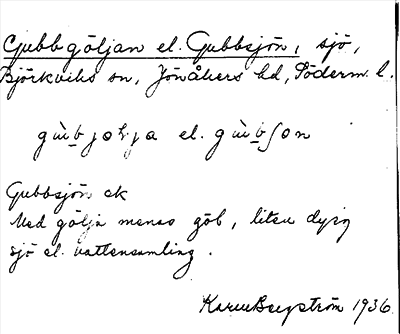 Gubbgöljan el. Gubbsjön, sjö,
Björkviks sn, Jönåkers hd, Söderm. l.
el.
Gubbsjön ek
Med gölja menas göl, liten dyig
sjö el. vattensamling.
Karin Bergström 1936.